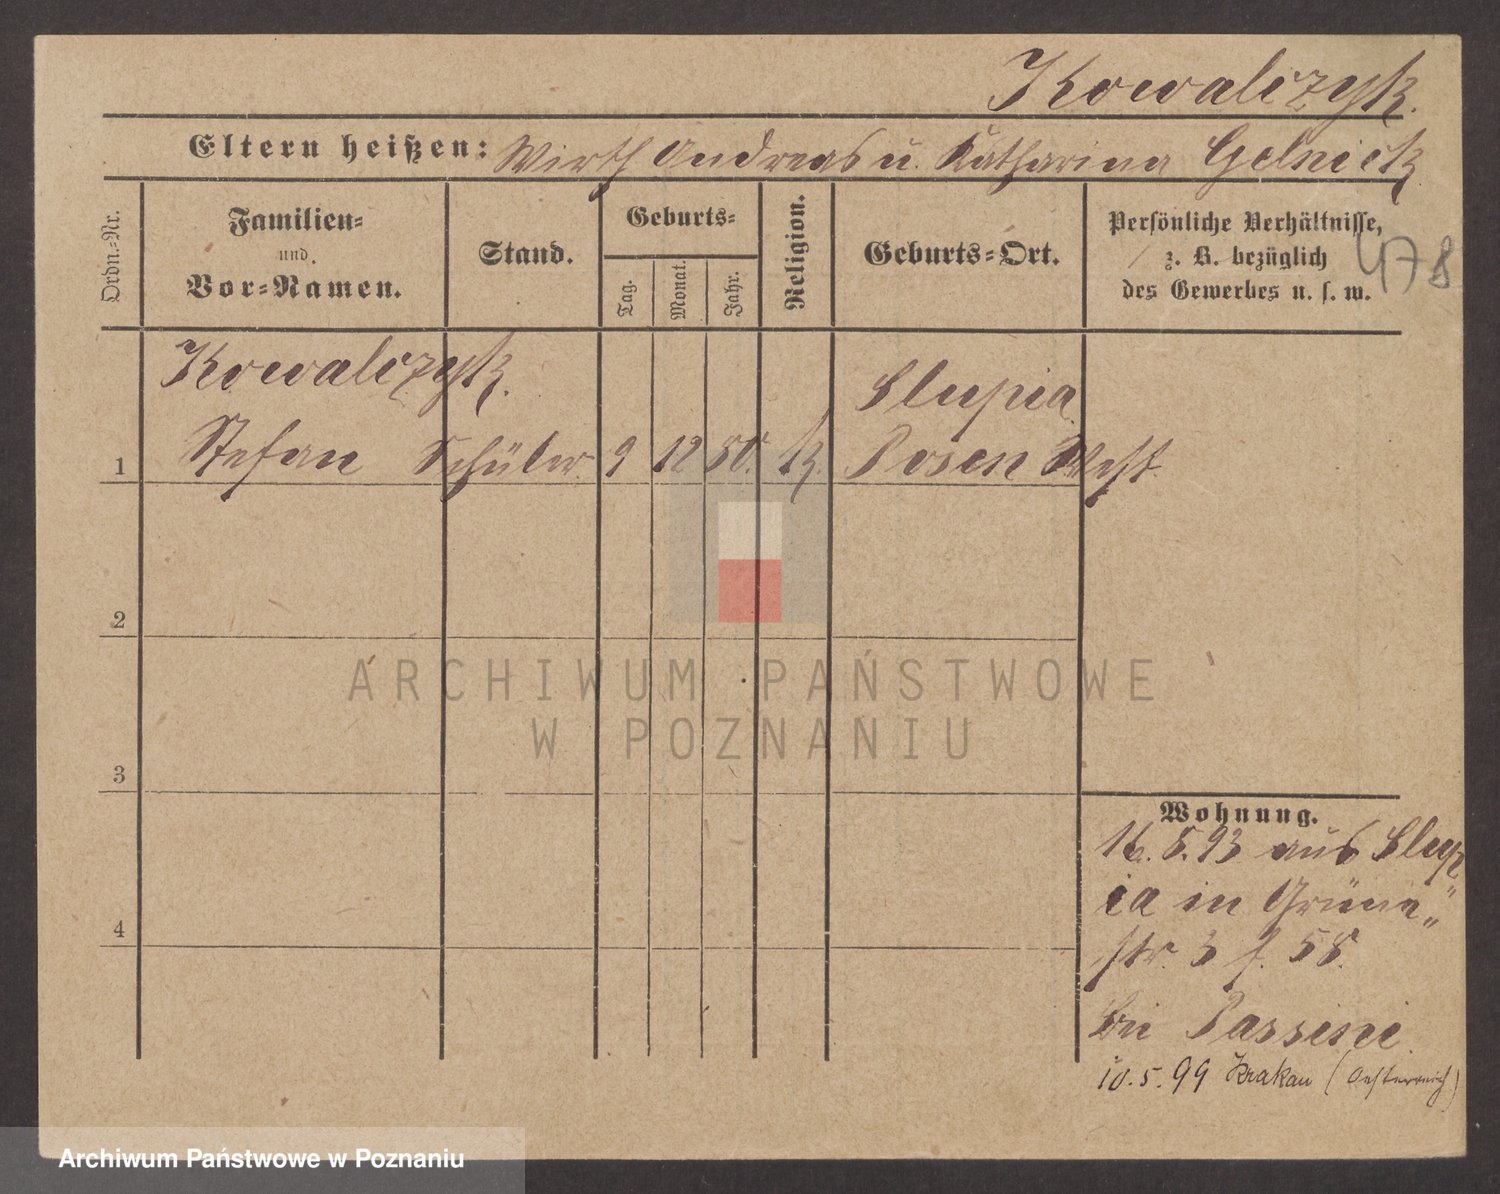 Kowalczyk.
Eltern heißen: Wirth Andreas u. Katharina
Ordn.-Nr.
Familien-
und
Vor-Namen.
Stand.
Geburts-
Tag.
Monat.
Jahr.
Religion.
Geburts-Ort.
Persönliche Verhältnisse,
z. B. bezüglich
des Gewerbes u. s. w.
478
Kowalczyk.
Slupia
1 Stefan Schüler 9 12 k. Posen West.
2
ARCHIWUM PAŃSTWOWE
W POZNANIU
3
Wohnung.
16. 8. 93 aus Slup
ia in Grüne„
str. 3 f. 58.
bei Passini
10.5.99 Krakau (Oesterreich)
4
Archiwum Państwowe w Poznaniu